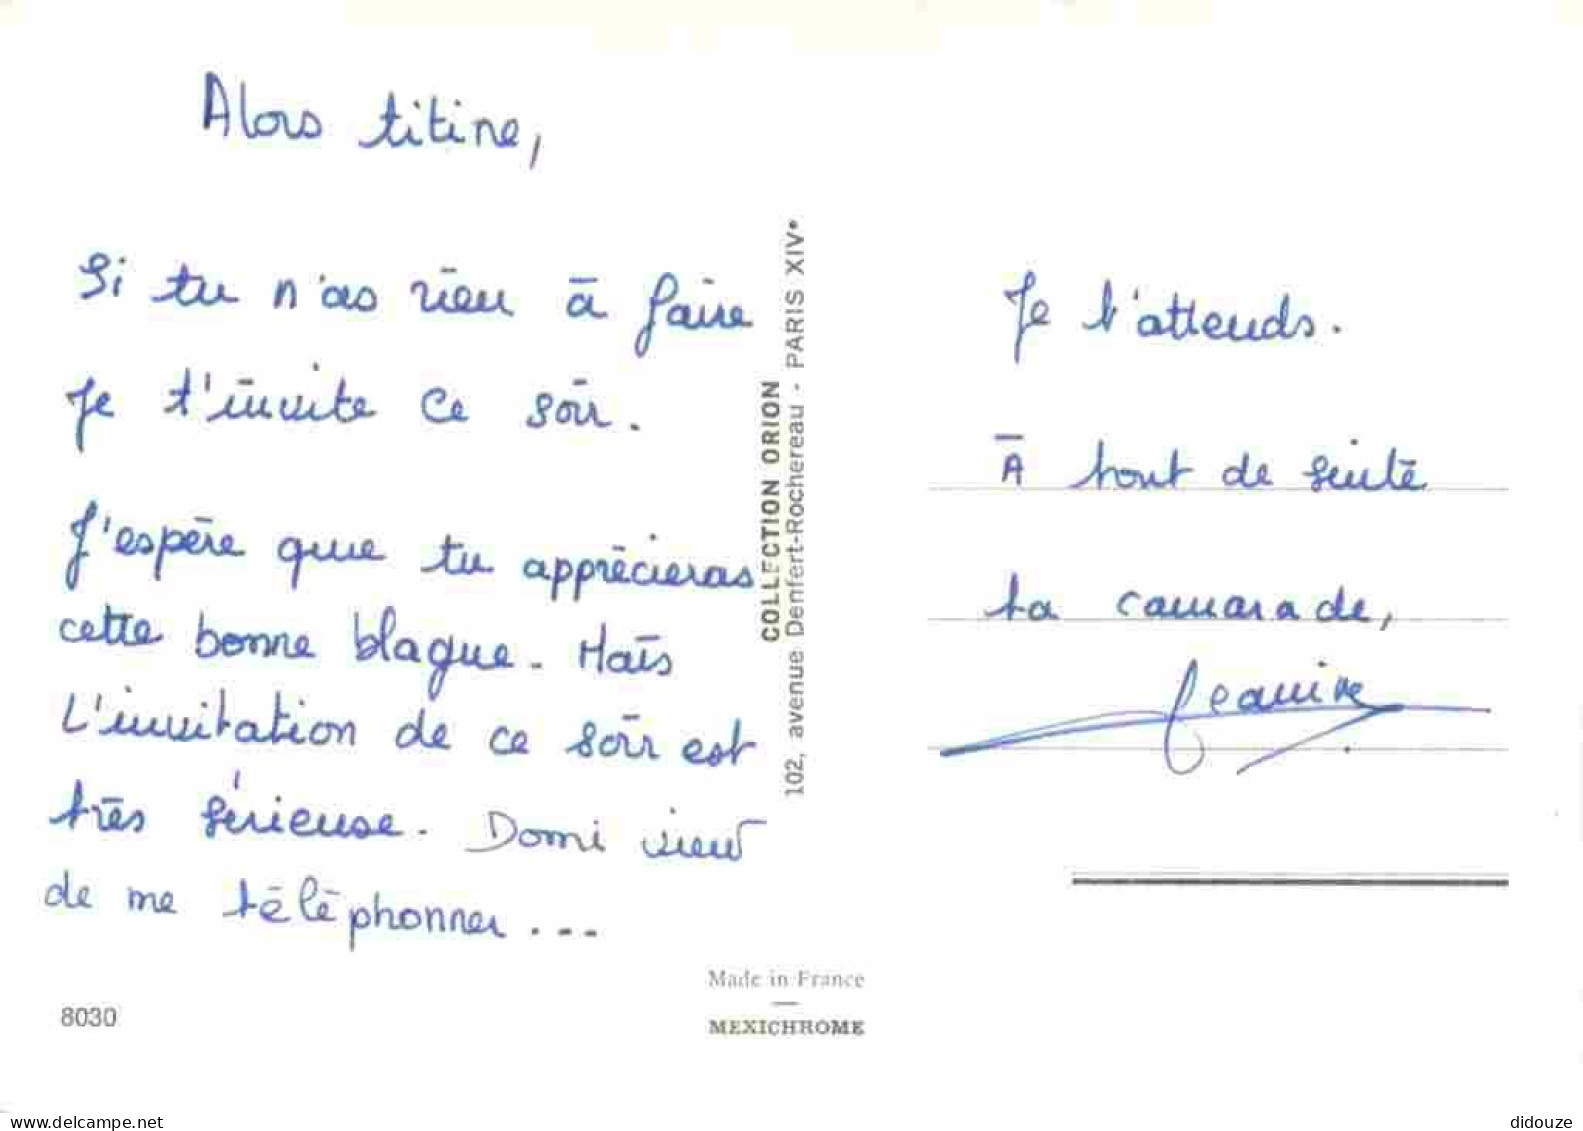 Alors titine,
Si tu n'as rien à faire
Je t'invite ce soir.
J'espère que tu apprécieras
cette bonne blague. Mais
L'invitation de ce soir est
très sérieuse. Domi vient
de me téléphonner...
8030
COLLECTION ORION
102, avenue Denfert-Rochereau - PARIS XIVe
Made in France
MEXICHROME
Je t'attends.
A tout de suite
ta camarade,
delcampe.net
didouze